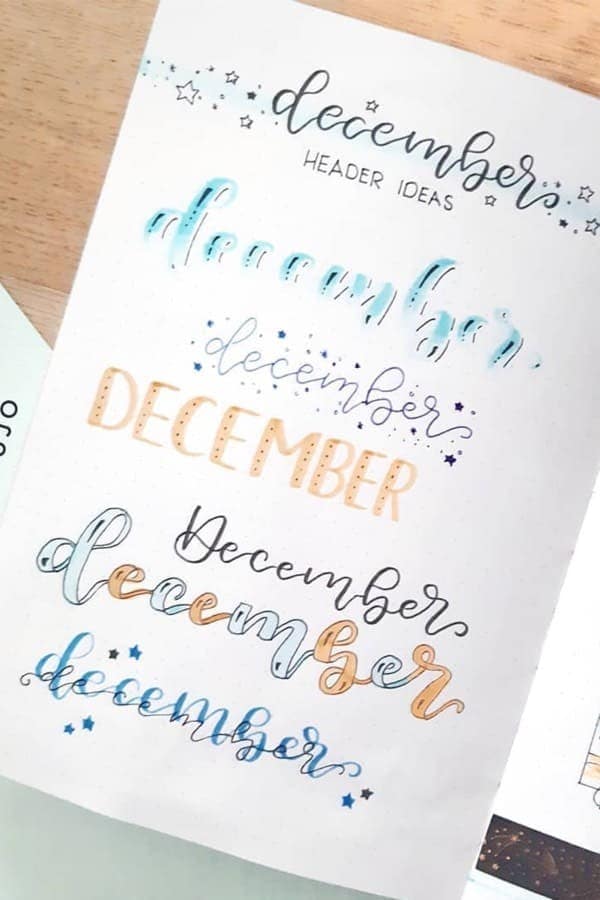 december
HEADER IDEAS
december
december
DECEMBER
December
december
december
december